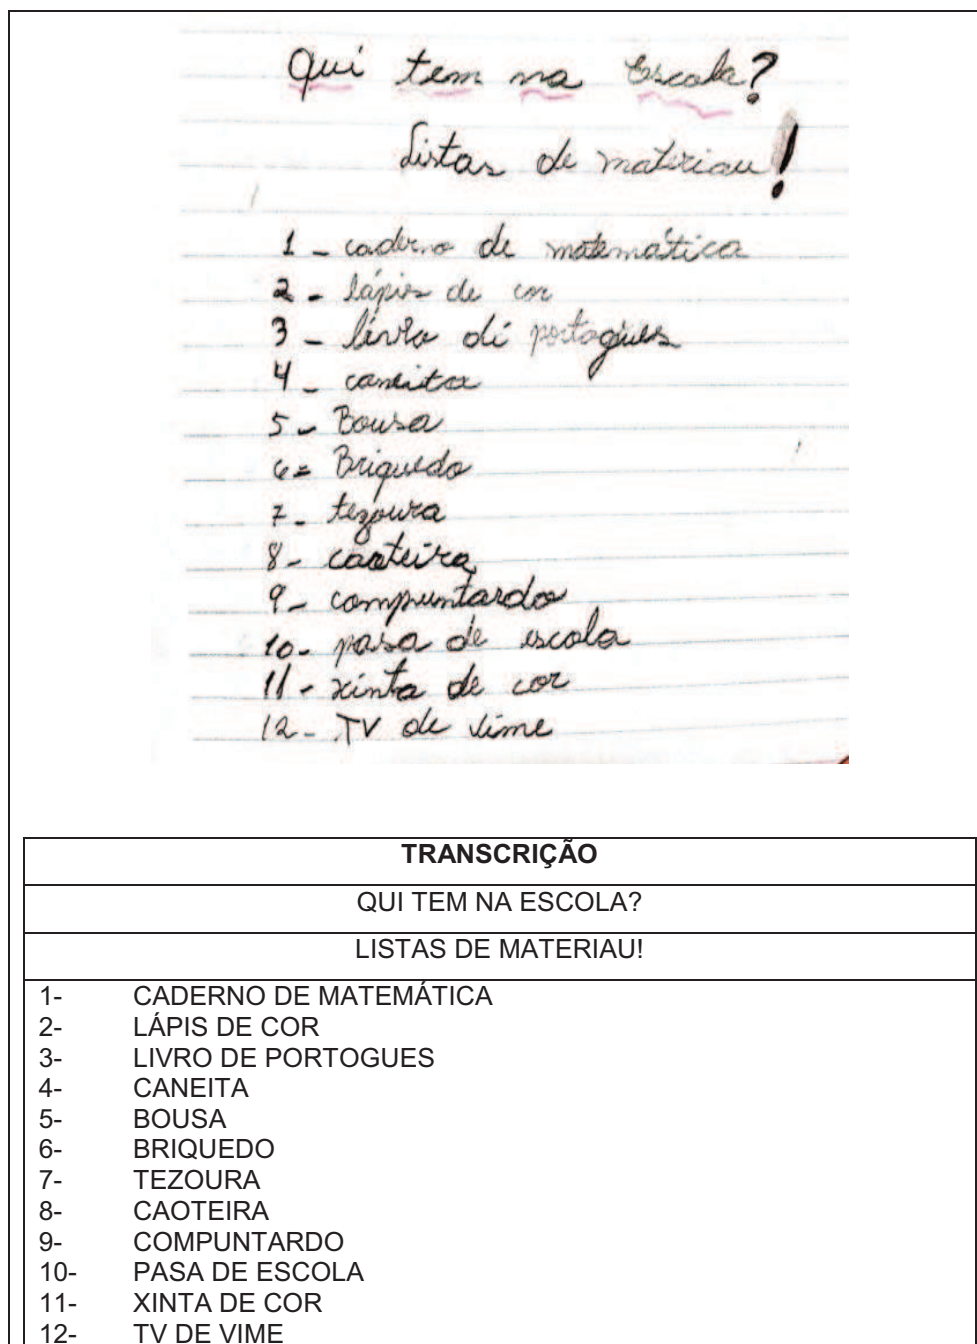 Qui tem na Escola?
Listas de materiau!
1 - caderno de matemática
2 - lápis de cor
3 - livro di portogues
4 - caneita
5 - Bousa
6 = Briquedo
7 - tezoura
8 - caoteira
9 - compuntardo
10 - pasa de escola
11 - xinta de cor
12 - TV de vime
TRANSCRIÇÃO
QUI TEM NA ESCOLA?
LISTAS DE MATERIAU!
1- CADERNO DE MATEMÁTICA
2- LÁPIS DE COR
3- LIVRO DE PORTOGUES
4- CANEITA
5- BOUSA
6- BRIQUEDO
7- TEZOURA
8- CAOTEIRA
9- COMPUNTARDO
10- PASA DE ESCOLA
11- XINTA DE COR
12- TV DE VIME